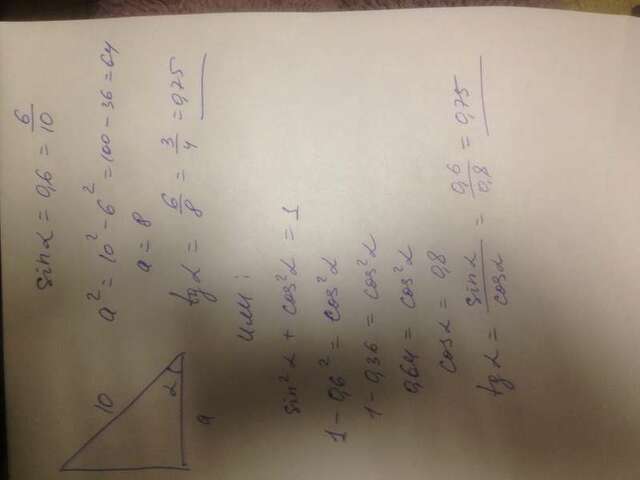 sinα = 0,6 = 6/10
10
a² = 10² - 6² = 100 - 36 = 64
a = 8
α
a
tgα = 6/8 = 3/4 = 0,75
или :
sin²α + cos²α = 1
1 - 0,6² = cos²α
1 - 0,36 = cos²α
0,64 = cos²α
cosα = 0,8
tgα = sinα/cosα = 0,6/0,8 = 0,75